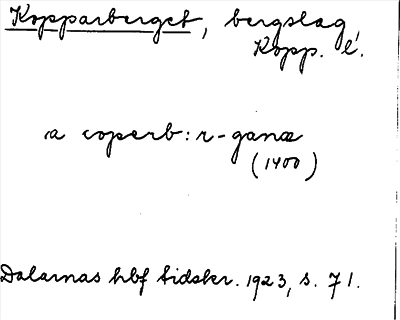 Kopparberget, bergslag,
Kopp. l.
a coperb:r-ganæ
(1400)
Dalarnas hbf tidskr. 1923, s. 71.